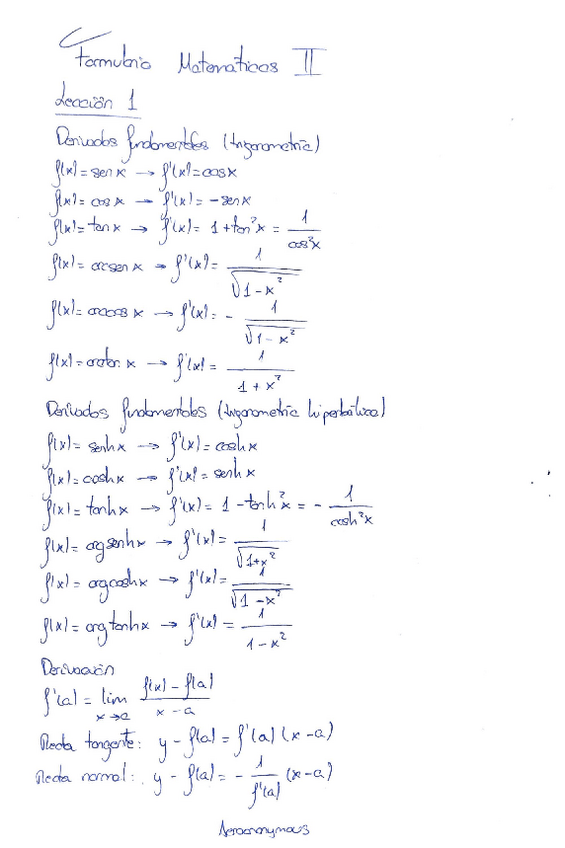 Formulario Matemáticas II
Lección 1
Derivadas fundamentales (trigonometría)
f(x) = sen x → f'(x) = cos x
f(x) = cos x → f'(x) = -sen x
f(x) = tan x → f'(x) = 1 + tan²x = 1/cos²x
f(x) = arcsen x → f'(x) = 1/√(1-x²)
f(x) = arccos x → f'(x) = - 1/√(1-x²)
f(x) = arctan x → f'(x) = 1/(1+x²)
Derivadas fundamentales (trigonometría hiperbólica)
f(x) = senh x → f'(x) = cosh x
f(x) = cosh x → f'(x) = senh x
f(x) = tanh x → f'(x) = 1 - tanh²x = - 1/cosh²x
f(x) = argsenh x → f'(x) = 1/√(1+x²)
f(x) = argcosh x → f'(x) = 1/√(1-x²)
f(x) = argtanh x → f'(x) = 1/(1-x²)
Derivación
f'(a) = lim x→a (f(x) - f(a))/(x-a)
Recta tangente: y - f(a) = f'(a) (x-a)
Recta normal: y - f(a) = - 1/f'(a) (x-a)
Aeroanonymous